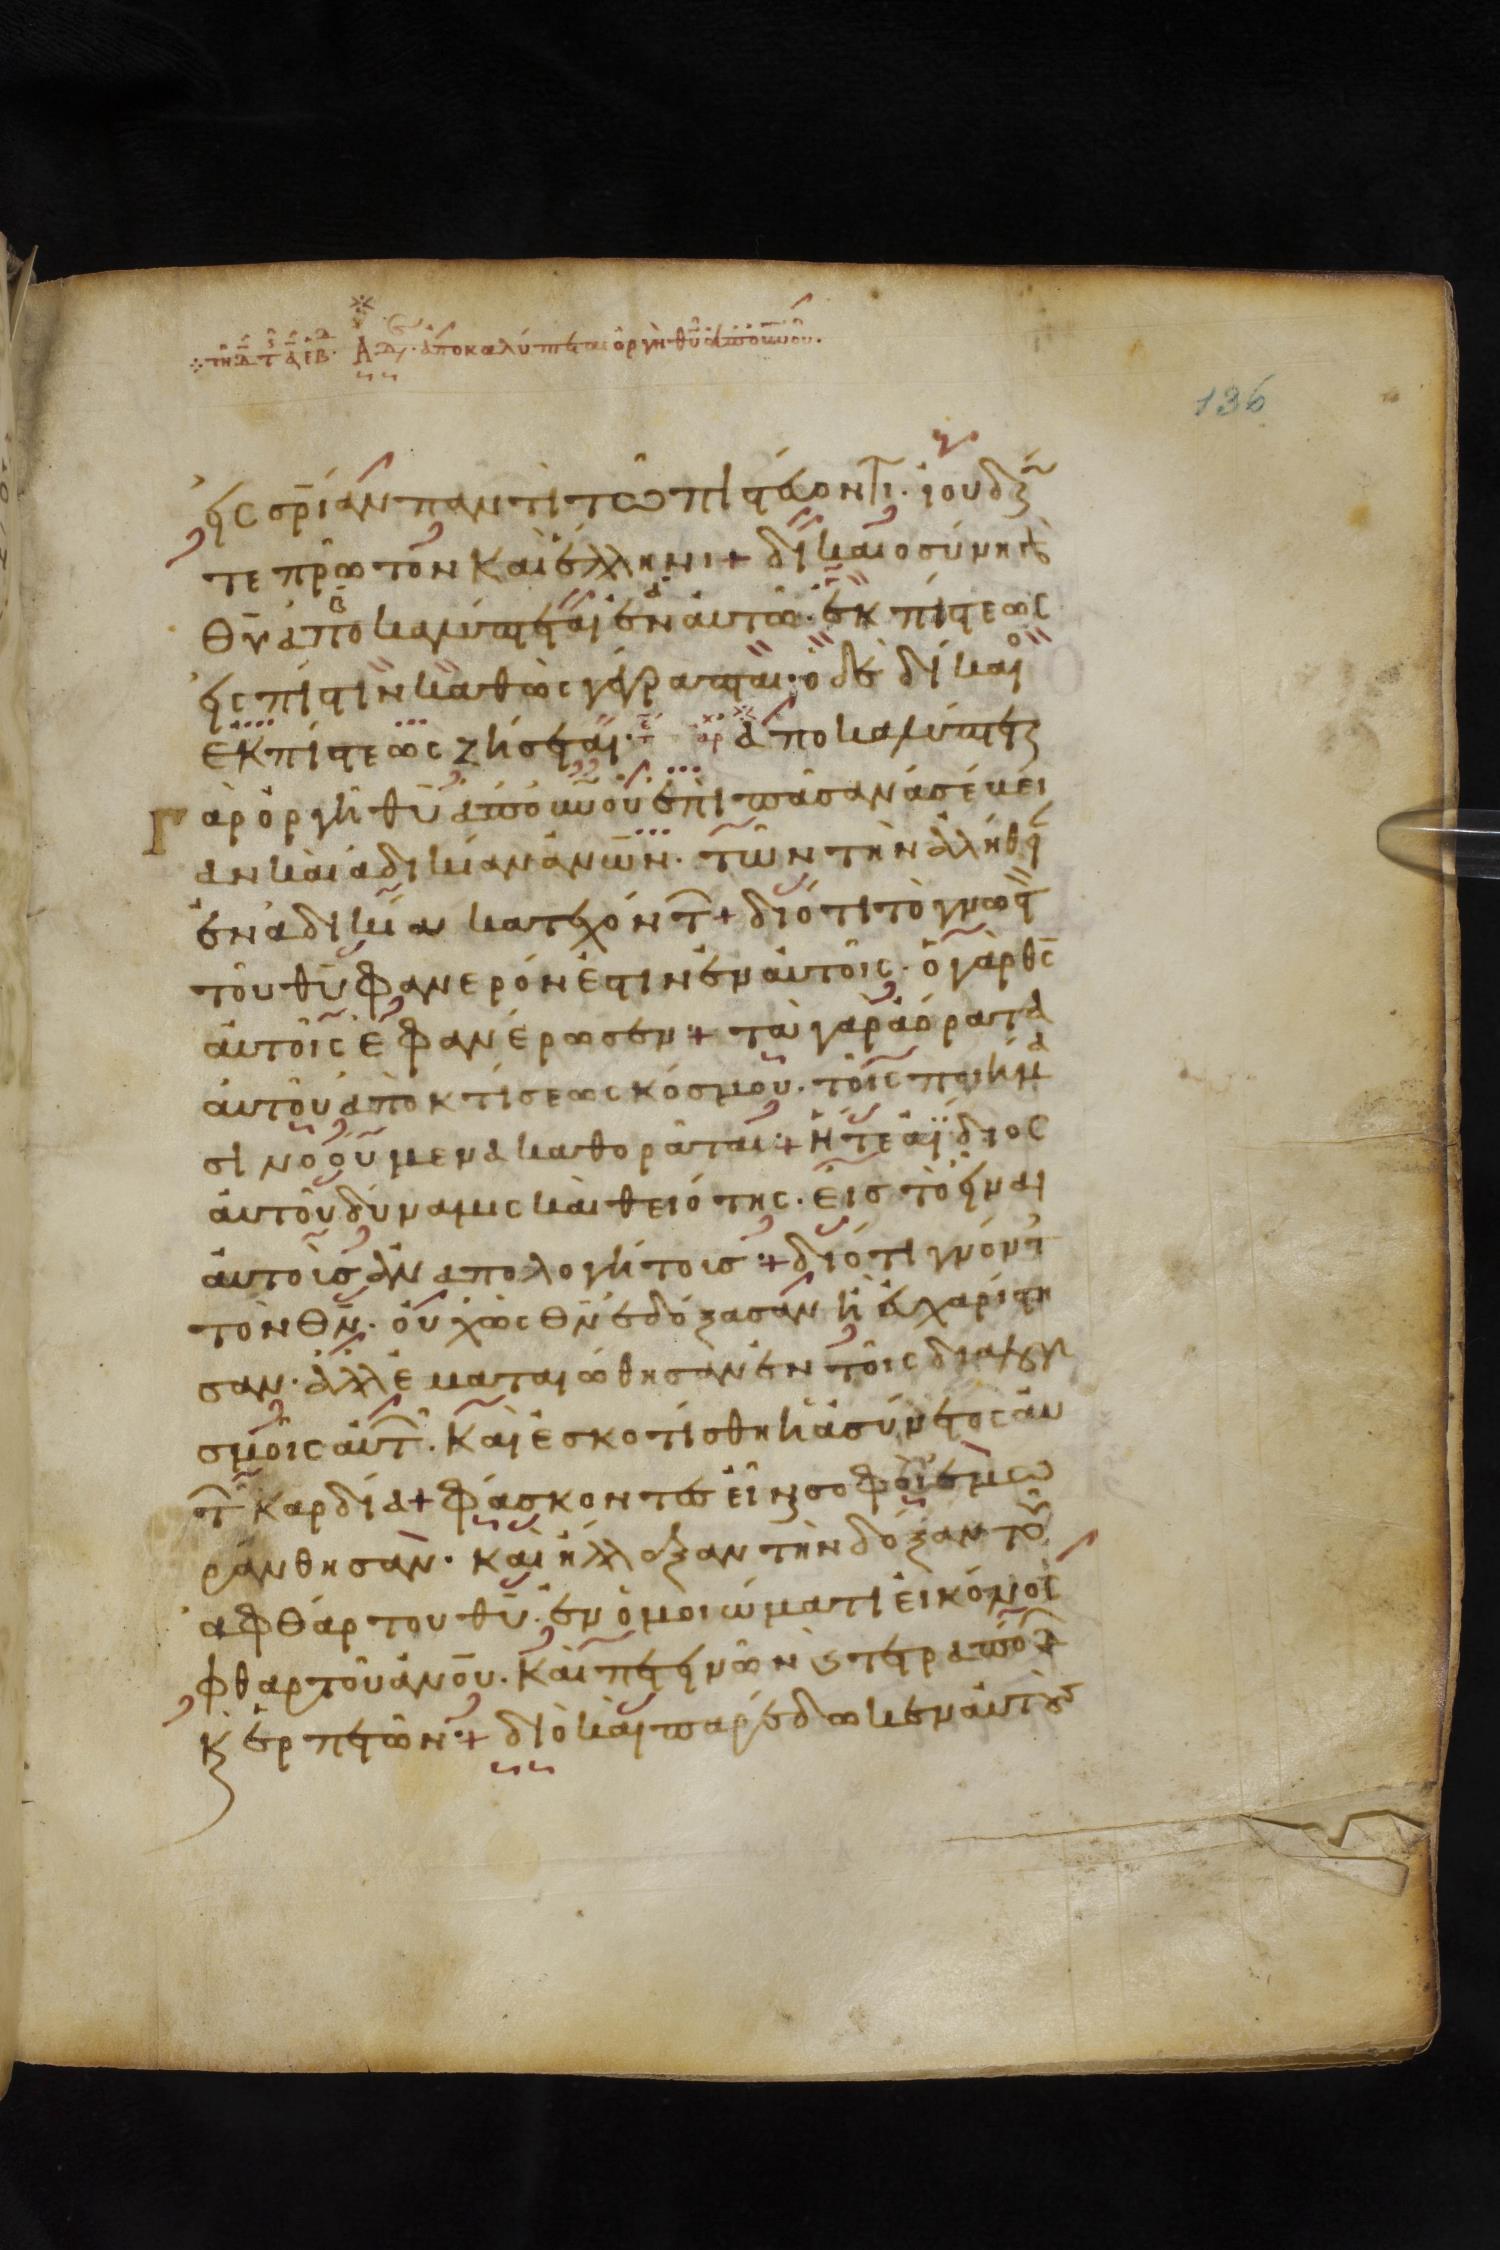 τῆ Δ τ ἑβ Β Α Δι· ἀποκαλύπτεται ὀργὴ θῦ ἀπ οὐνοῦ.
136
εἰς σρίαν παντὶ τῶ πιστεύοντι· ἰουδαίω
τε πρῶτον καὶ ἕλληνι + δικαιοσύνη γὰρ
θῦ ἀποκαλύπτεται ἐν αὐτῶ· ἐκ πίστεως
εἰς πίστιν καθὼς γέγραπται· ὁ δὲ δίκαιο
ἐκ πίστεως ζήσεται· ἀποκαλύπτεται
γὰρ ὀργὴ θῦ ἀπ οὐνοῦ ἐπὶ πᾶσαν ἀσέβει
αν καὶ ἀδικίαν ἀνῶν· τῶν τὴν ἀλήθει
ἐν ἀδικία κατεχόντ + διότι τὸ γνωστ
τοῦ θῦ φανερόν ἐστιν ἐν αὐτοῖς· ὁ γὰρ θς
αὐτοῖς ἐφανέρωσεν + τὰ γὰρ ἀόρατα
αὐτοῦ ἀπὸ κτίσεως κόσμου· τοῖς ποιήμα
σι νοούμενα καθορᾶται + ἥ τε ἀΐδιος
αὐτοῦ δύναμις καὶ θειότης· εἰς τὸ εἶναι
αὐτοὺς ἀναπολογήτους + διότι γνόντ
τὸν θν· οὐχ ὡς θν ἐδόξασαν ἢ εὐχαρίστη
σαν· ἀλλ ἐματαιώθησαν ἐν τοῖς διαλογι
σμοῖς αὐτ· καὶ ἐσκοτίσθη ἡ ἀσύνετος αὐ
τ καρδία + φάσκοντες εἶναι σοφοὶ ἐμω
ράνθησαν· καὶ ἤλλαξαν τὴν δόξαν τοῦ
ἀφθάρτου θῦ· ἐν ὁμοιώματι εἰκόνος
φθαρτοῦ ἀνου· καὶ πετεινῶν καὶ τετραπόδ
καὶ ἑρπετῶν + διὸ καὶ παρέδωκεν αὐτοὺς